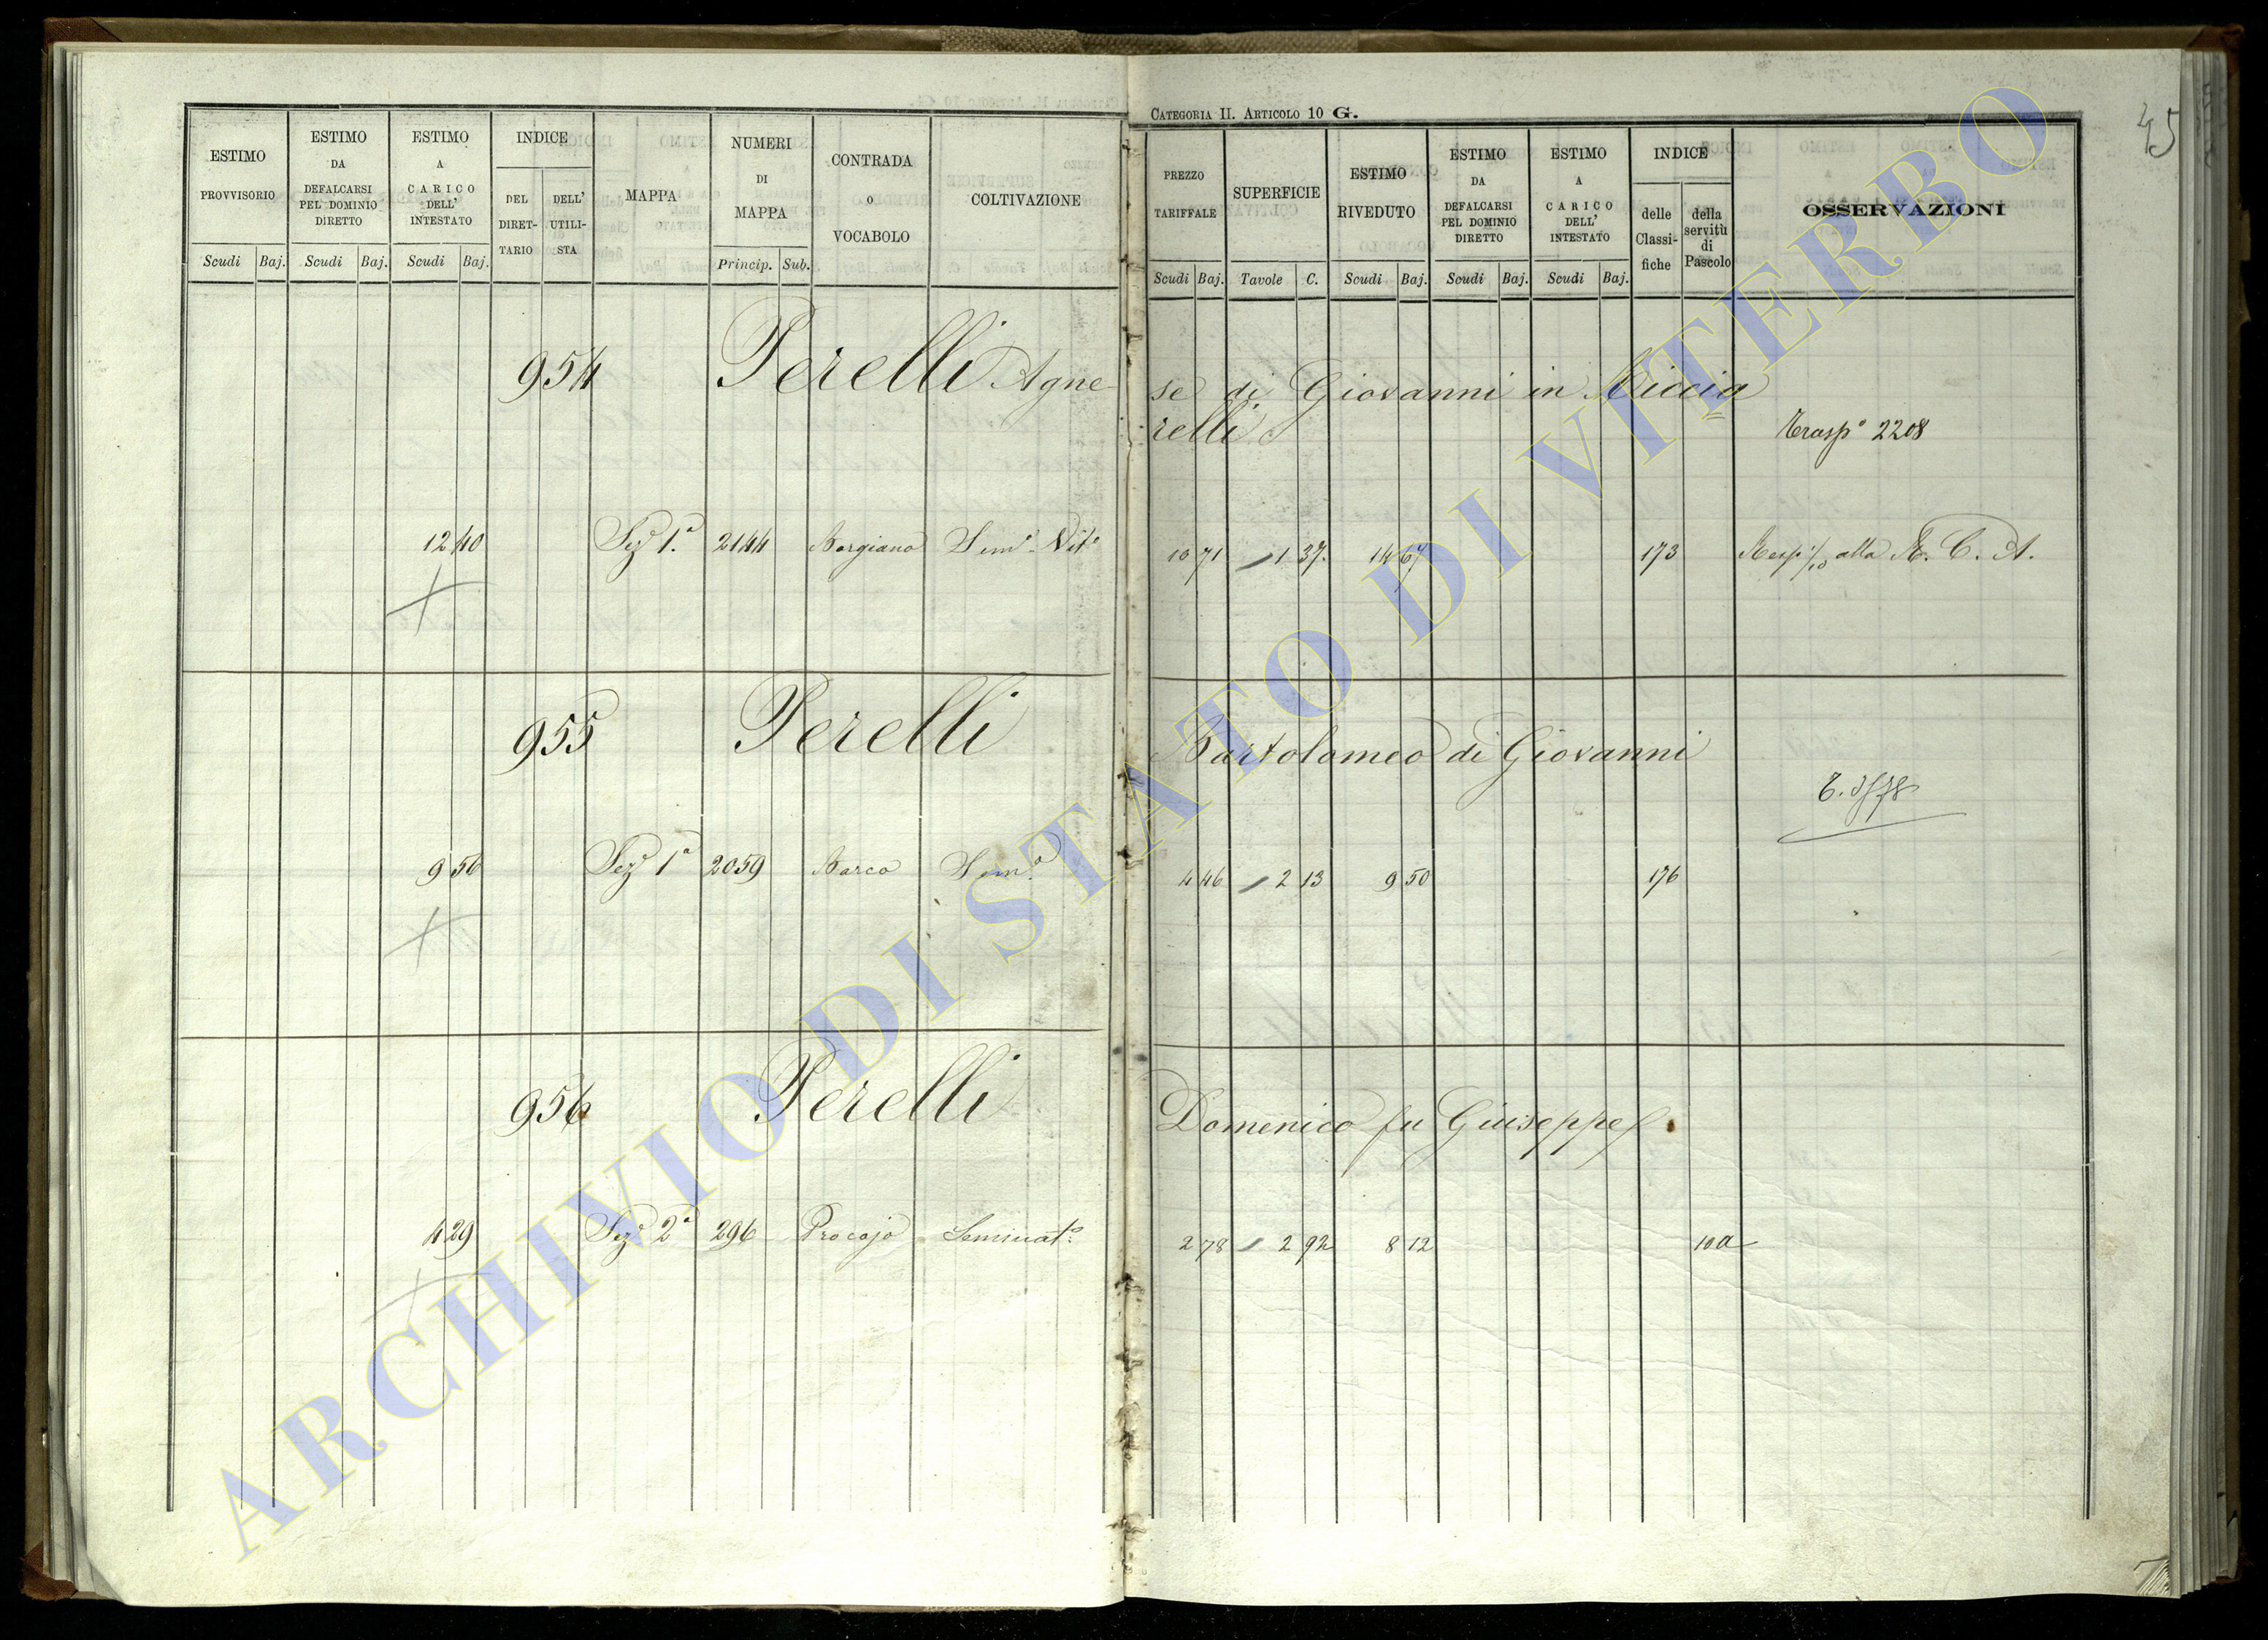 ESTIMO PROVVISORIO
Scudi Baj.
ESTIMO DA DEFALCARSI PEL DOMINIO DIRETTO
Scudi Baj.
ESTIMO A CARICO DELL' INTESTATO
Scudi Baj.
INDICE
DEL DIRET-TARIO
DELL' UTILI-STA
MAPPA
NUMERI DI MAPPA
Princip. Sub.
CONTRADA O VOCABOLO
COLTIVAZIONE
954 Perelli Agne
12 40 Sezᵉ 1.ᵃ 2144 Morgiano Semᵒ Vitᵒ
955 Perelli
9 56 Sezᵉ 1ᵃ 2059 Marco Semᵒ
956 Perelli
4 29 Sezᵉ 2ᵃ 296 Procojo Seminatᵒ
CATEGORIA II. ARTICOLO 10 G.
45
PREZZO TARIFFALE
Scudi Baj.
SUPERFICIE
Tavole C.
ESTIMO RIVEDUTO
Scudi Baj.
ESTIMO DA DEFALCARSI PEL DOMINIO DIRETTO
Scudi Baj.
ESTIMO A CARICO DELL' INTESTATO
Scudi Baj.
INDICE
delle Classi-fiche
della servitù di Pascolo
OSSERVAZIONI
se di Giovanni in Riccia
relli
Traspᵒ 2208
10 71 1 37 14 67 173 Resp. 1/10 alla R. C. A.
Bartolomeo di Giovanni
4 46 2 13 9 50 176
Domenico fu Giuseppe
2 78 2 92 8 12 10 a
ARCHIVIO DI STATO DI VITERBO